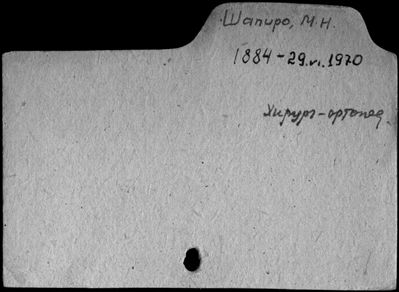 Шапиро, М.Н.
1884-29.VI.1970
Хирург-ортопед